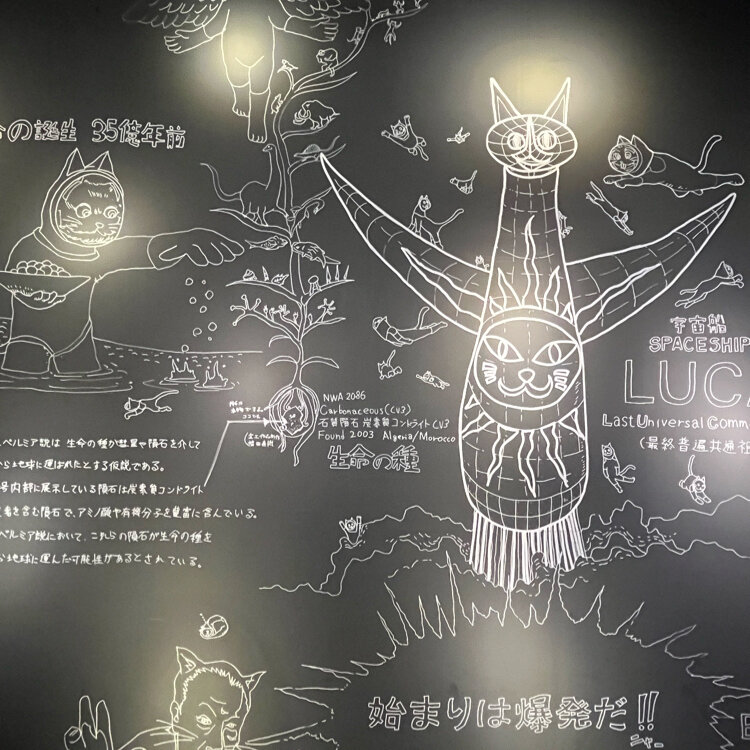 命の誕生 35億年前
NWA 2086
Carbonaceous(CV3)
石質隕石 炭素質コンドライト CV3
Found 2003 Algeria/Morocco
生命の種
宇宙船
SPACESHIP
LUCA
Last Universal Comm
(最終普遍共通祖
スペルミア説は 生命の種が彗星や隕石を介して
から地球に運ばれたとする仮説である。
号内部に展示している隕石は炭素質コンドライト
素を含む隕石で、アミノ酸や有機分子を豊富に含んでいる。
ペルミア説において、これらの隕石が生命の種を
ら地球に運んだ可能性があるとされている。
始まりは爆発だ!!
ニャー